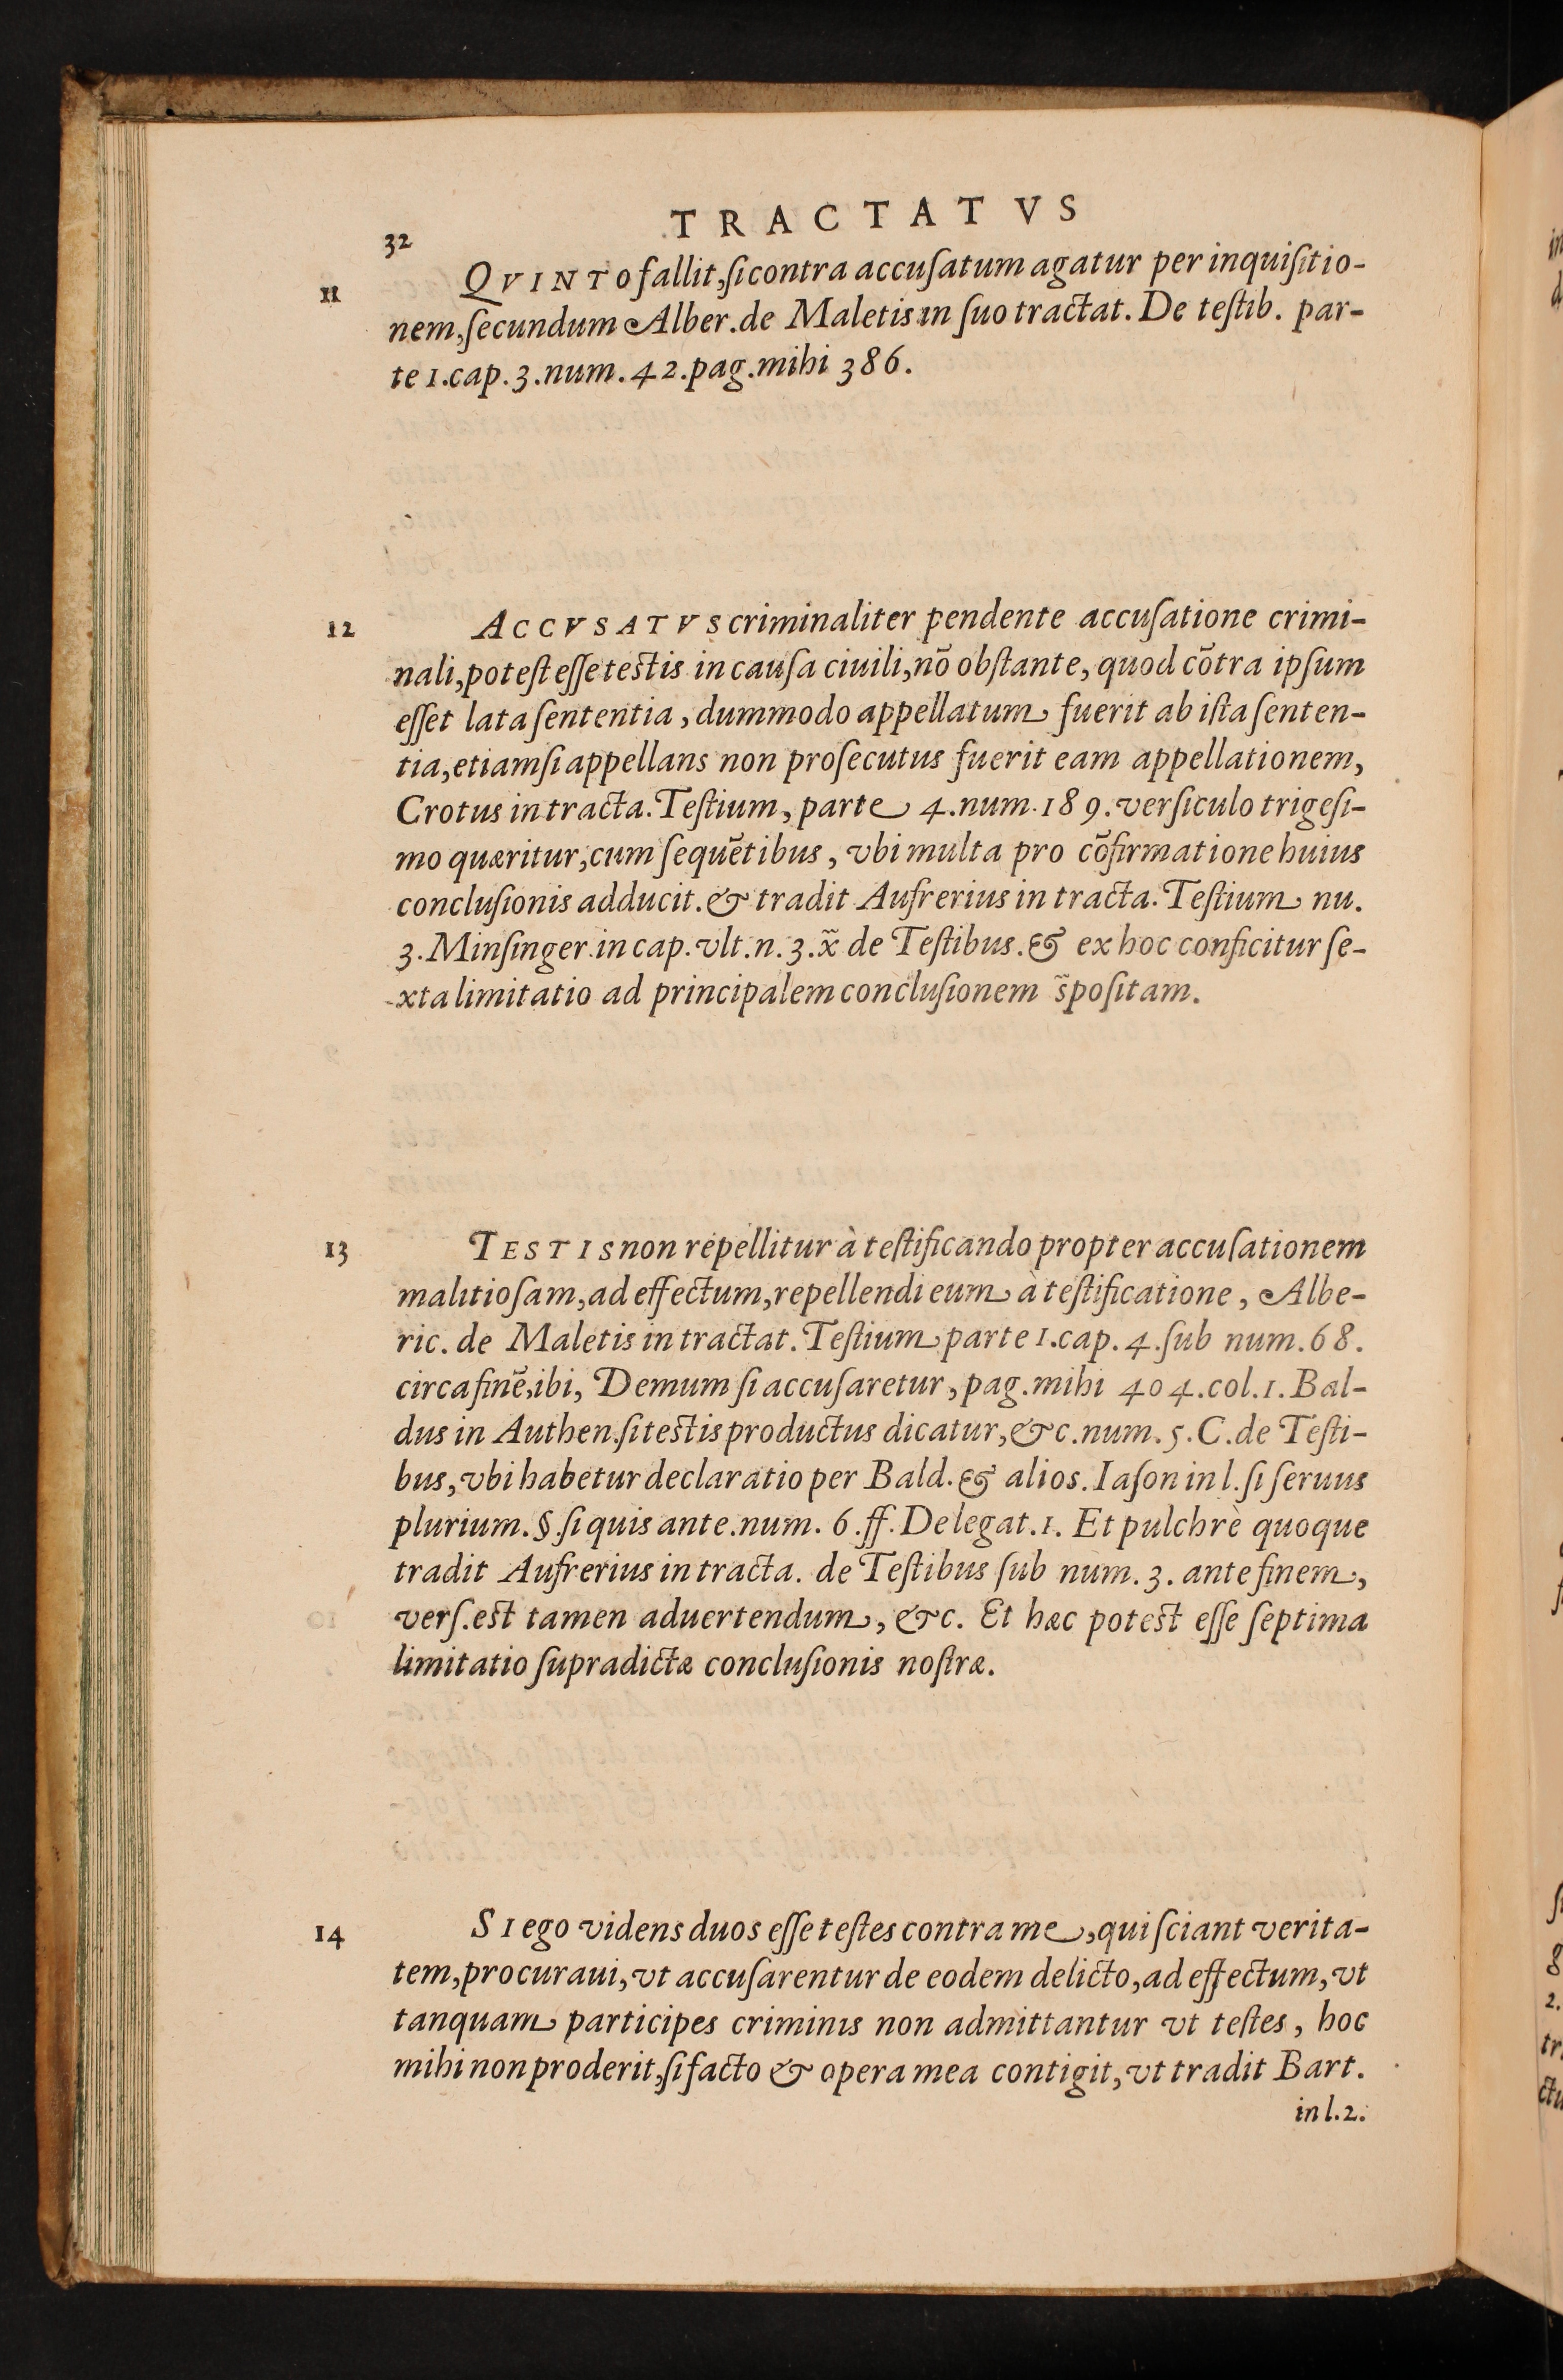 32
TRACTATVS
11
QVINTO fallit, ſi contra accuſatum agatur per inquiſitio-
nem, ſecundum Alber. de Maletis in ſuo tractat. De teſtib. par-
te 1. cap. 3. num. 42. pag. mihi 386.
12
ACCVSATVS criminaliter pendente accuſatione crimi-
nali, poteſt eſſe teſtis in cauſa ciuili, nõ obſtante, quod cõtra ipſum
eſſet lata ſententia, dummodo appellatum fuerit ab iſta ſenten-
tia, etiamſi appellans non proſecutus fuerit eam appellationem,
Crotus in tracta. Teſtium, parte 4. num. 189. verſiculo trigeſi-
mo quæritur, cum ſequẽtibus, vbi multa pro cõfirmatione huius
concluſionis adducit. & tradit Aufrerius in tracta. Teſtium nu.
3. Minſinger. in cap. vlt. n. 3. x̃ de Teſtibus. & ex hoc conficitur ſe-
xta limitatio ad principalem concluſionem s̃poſitam.
13
TESTIS non repellitur à teſtificando propter accuſationem
malitioſam, ad effectum, repellendi eum à teſtificatione, Albe-
ric. de Maletis in tractat. Teſtium parte 1. cap. 4. ſub num. 68.
circa finẽ, ibi, Demum ſi accuſaretur, pag. mihi 404. col. 1. Bal-
dus in Authen. ſi teſtis productus dicatur, &c. num. 5. C. de Teſti-
bus, vbi habetur declaratio per Bald. & alios. Iaſon in l. ſi ſeruus
plurium. §. ſi quis ante. num. 6. ff. De legat. 1. Et pulchrè quoque
tradit Aufrerius in tracta. de Teſtibus ſub num. 3. ante finem,
verſ. eſt tamen aduertendum, &c. Et hæc poteſt eſſe ſeptima
limitatio ſupradictæ concluſionis noſtræ.
14
SI ego videns duos eſſe teſtes contra me, qui ſciant verita-
tem, procuraui, vt accuſarentur de eodem delicto, ad effectum, vt
tanquam participes criminis non admittantur vt teſtes, hoc
mihi non proderit, ſi facto & opera mea contigit, vt tradit Bart.
in l. 2.